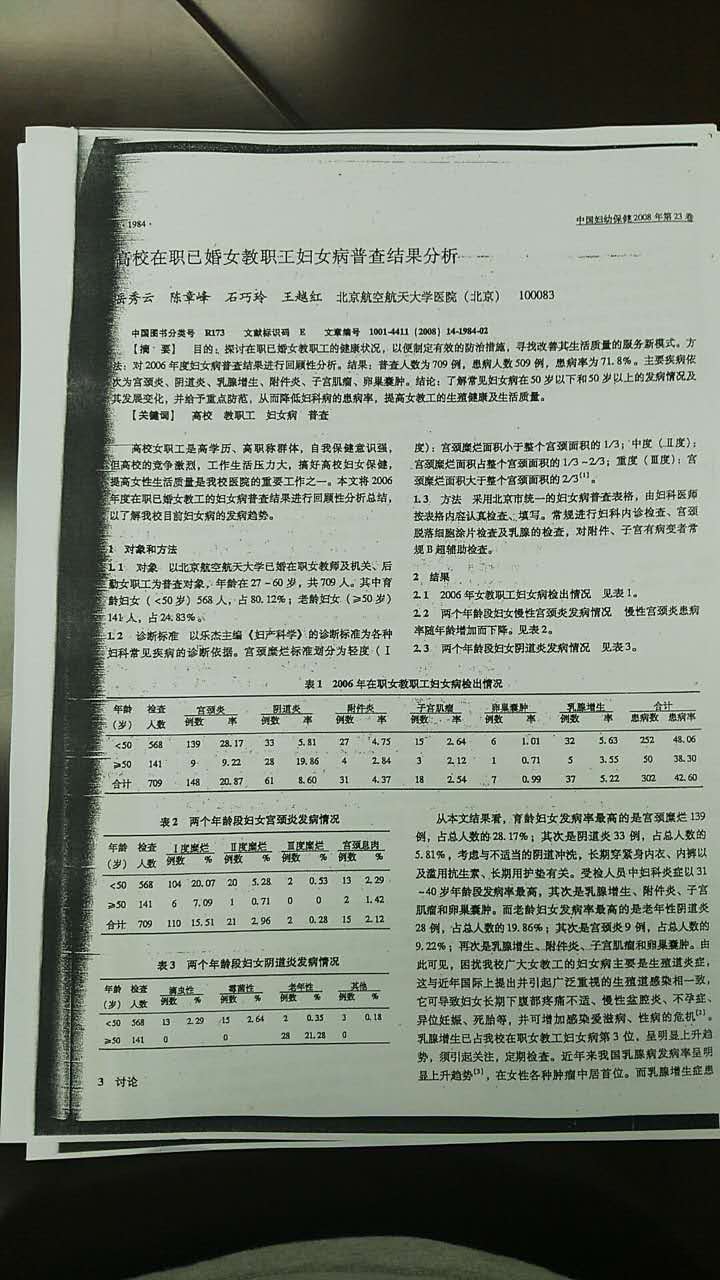 · 1984 ·
中国妇幼保健2008年第23卷
高校在职已婚女教职工妇女病普查结果分析
岳秀云 陈章峰 石巧玲 王越红 北京航空航天大学医院（北京） 100083
中国图书分类号 R173 文献标识码 E 文章编号 1001-4411（2008）14-1984-02
【摘 要】 目的：探讨在职已婚女教职工的健康状况，以便制定有效的防治措施，寻找改善其生活质量的服务新模式。方
法：对2006年度妇女病普查结果进行回顾性分析。结果：普查人数为709例，患病人数509例，患病率为71.8%。主要疾病依
次为宫颈炎、阴道炎、乳腺增生、附件炎、子宫肌瘤、卵巢囊肿。结论：了解常见妇女病在50岁以下和50岁以上的发病情况及
其发展变化，并给予重点防范，从而降低妇科病的患病率，提高女教工的生殖健康及生活质量。
【关键词】 高校 教职工 妇女病 普查
高校女职工是高学历、高职称群体，自我保健意识强，
但高校的竞争激烈，工作生活压力大，搞好高校妇女保健，
提高女性生活质量是我校医院的重要工作之一。本文将2006
年度在职已婚女教工的妇女病普查结果进行回顾性分析总结，
以了解我校目前妇女病的发病趋势。
1 对象和方法
1.1 对象 以北京航空航天大学已婚在职女教师及机关、后
勤女职工为普查对象，年龄在27~60岁，共709人。其中育
龄妇女（<50岁）568人，占80.12%；老龄妇女（≥50岁）
141人，占24.83%。
1.2 诊断标准 以乐杰主编《妇产科学》的诊断标准为各种
妇科常见疾病的诊断依据。宫颈糜烂标准划分为轻度（Ⅰ
度）：宫颈糜烂面积小于整个宫颈面积的1/3；中度（Ⅱ度）：
宫颈糜烂面积占整个宫颈面积的1/3~2/3；重度（Ⅲ度）：宫
颈糜烂面积大于整个宫颈面积的2/3[1]。
1.3 方法 采用北京市统一的妇女病普查表格，由妇科医师
按表格内容认真检查、填写。常规进行妇科内诊检查、宫颈
脱落细胞涂片检查及乳腺的检查，对附件、子宫有病变者常
规B超辅助检查。
2 结果
2.1 2006年女教职工妇女病检出情况 见表1。
2.2 两个年龄段妇女慢性宫颈炎发病情况 慢性宫颈炎患病
率随年龄增加而下降。见表2。
2.3 两个年龄段妇女阴道炎发病情况 见表3。
表1 2006年在职女教职工妇女病检出情况
年龄 检查 宫颈炎 阴道炎 附件炎 子宫肌瘤 卵巢囊肿 乳腺增生 合计
（岁） 人数 例数 率 例数 率 例数 率 例数 率 例数 率 例数 率 患病数 患病率
<50 568 139 28.17 33 5.81 27 4.75 15 2.64 6 1.01 32 5.63 252 48.06
≥50 141 9 9.22 28 19.86 4 2.84 3 2.12 1 0.71 5 3.55 50 38.30
合计 709 148 20.87 61 8.60 31 4.37 18 2.54 7 0.99 37 5.22 302 42.60
表2 两个年龄段妇女宫颈炎发病情况
年龄 检查 Ⅰ度糜烂 Ⅱ度糜烂 Ⅲ度糜烂 宫颈息肉
（岁） 人数 例数 % 例数 % 例数 % 例数 %
<50 568 104 20.07 20 5.28 2 0.53 13 2.29
≥50 141 6 7.09 1 0.71 0 0 2 1.42
合计 709 110 15.51 21 2.96 2 0.28 15 2.12
表3 两个年龄段妇女阴道炎发病情况
年龄 检查 滴虫性 霉菌性 老年性 其他
（岁） 人数 例数 % 例数 % 例数 % 例数 %
<50 568 13 2.29 15 2.64 2 0.35 3 0.18
≥50 141 0 0 28 21.28 0
3 讨论
从本文结果看，育龄妇女发病率最高的是宫颈糜烂139
例，占总人数的28.17%；其次是阴道炎33例，占总人数的
5.81%，考虑与不适当的阴道冲洗，长期穿紧身内衣、内裤以
及滥用抗生素、长期用护垫有关。受检人员中妇科炎症以31
~40岁年龄段发病率最高，其次是乳腺增生、附件炎、子宫
肌瘤和卵巢囊肿。而老龄妇女发病率最高的是老年性阴道炎
28例，占总人数的19.86%；其次是宫颈炎9例，占总人数的
9.22%；再次是乳腺增生、附件炎、子宫肌瘤和卵巢囊肿。由
此可见，困扰我校广大女教工的妇女病主要是生殖道炎症，
这与近年国际上提出并引起广泛重视的生殖道感染相一致，
它可导致妇女长期下腹部疼痛不适、慢性盆腔炎、不孕症、
异位妊娠、死胎等，并可增加感染爱滋病、性病的危机[2]。
乳腺增生已占我校在职女教工妇女病第3位，呈明显上升趋
势，须引起关注，定期检查。近年来我国乳腺病发病率呈明
显上升趋势[3]，在女性各种肿瘤中居首位。而乳腺增生症患